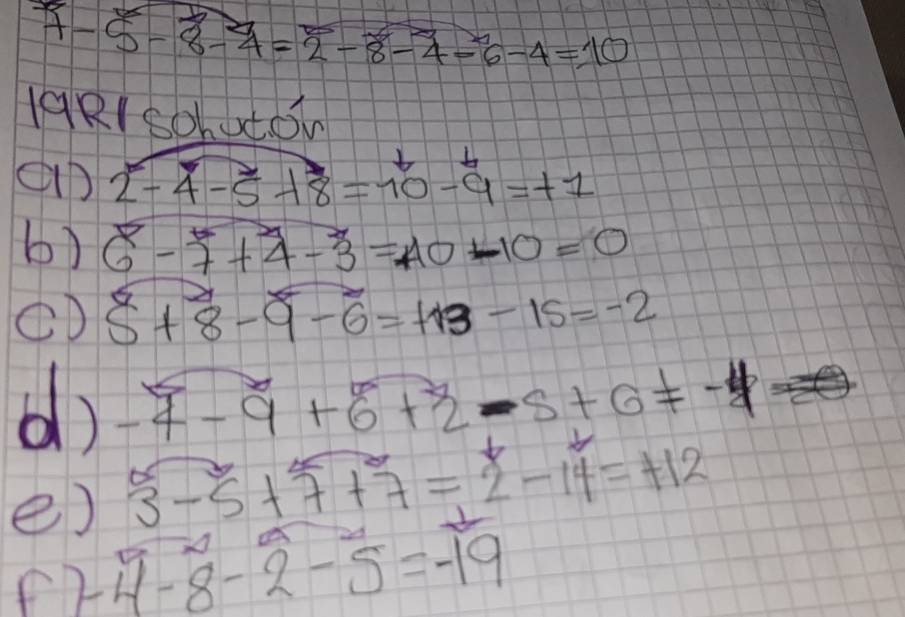 7-5-8-4=2-8-4=6-4=10
19R1 solución
a) 2-4-5+8=10-9=+1
b) 6-7+4-3=10-10=0
c) 5+8-9-6=+13-15=-2
d) -4-9+6+2-5+6=-4
e) 3-5+7+7=2-14=+12
f) -4-8-2-5=-19